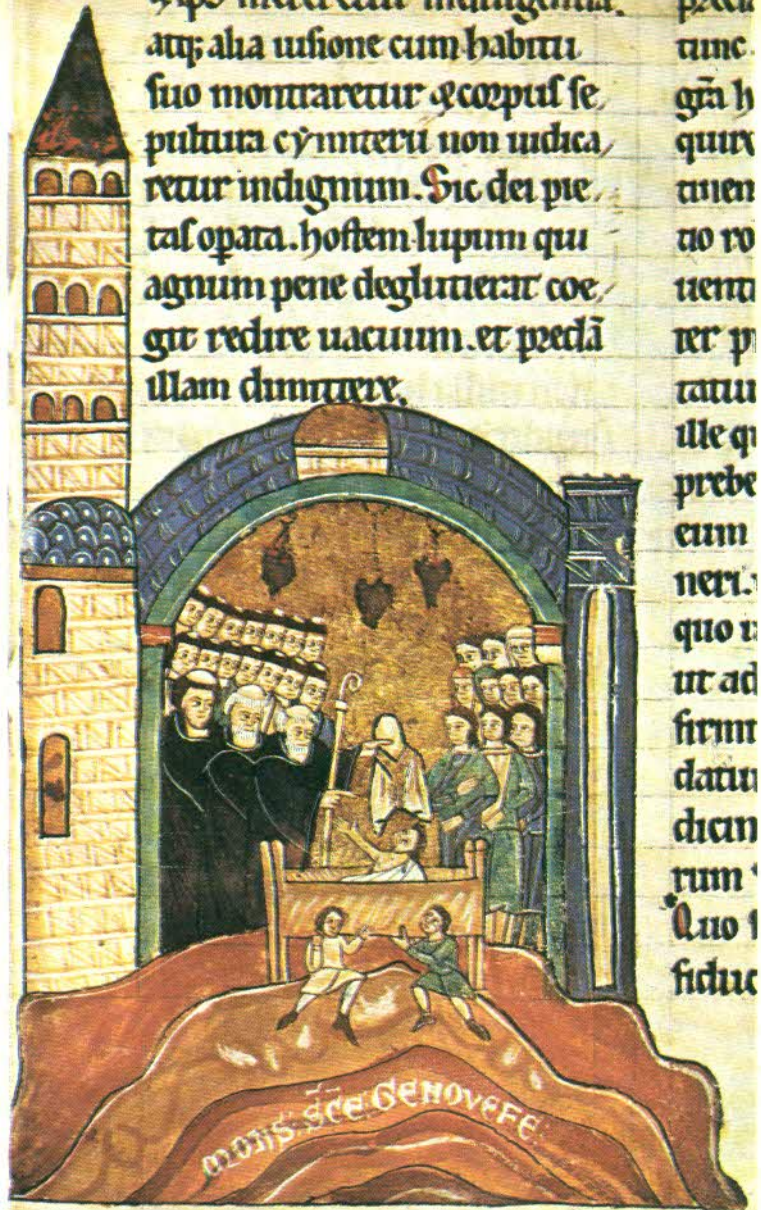 indulgentia.
atq; alia uisione cum habitu
suo montraretur & corpus se
pultura cymiterii non iudica
retur indignum. Sic dei pie
tas opata. hostem lupum qui
agnum pene deglutierat coe
git redire uacuum. et predā
illam dimittere.
tunc
grā h
tio ro
ter p
ille q
prebe
eum
neri.
quo
ut ad
rum
Quo
fiduc
MONS SC̄E GENOVEFE